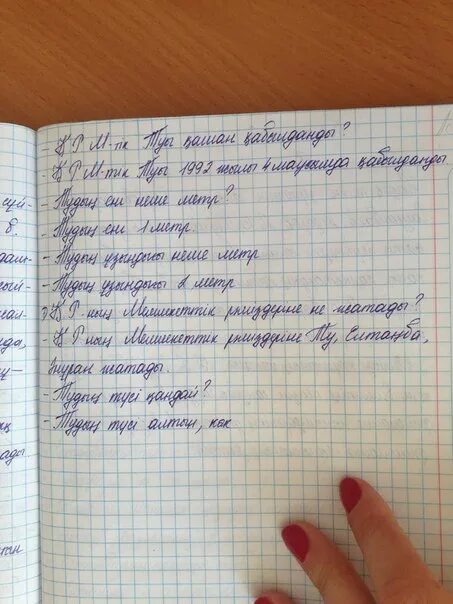 - ҚР М-тік Туы қашан қабылданды?
ҚР М-тік Туы 1992 жылы 4 маусымда қабылданды
- Тудың ені неше метр?
- Тудың ені 1 метр.
- Тудың ұзындығы неше метр
- Тудың ұзындығы 2 метр
ҚР-ның Мемлекеттік рәміздеріне не жатады?
- ҚР-ның Мемлекеттік рәміздеріне Ту, Елтаңба,
Әнұран жатады.
- Тудың түсі қандай?
- Тудың түсі алтын, көк